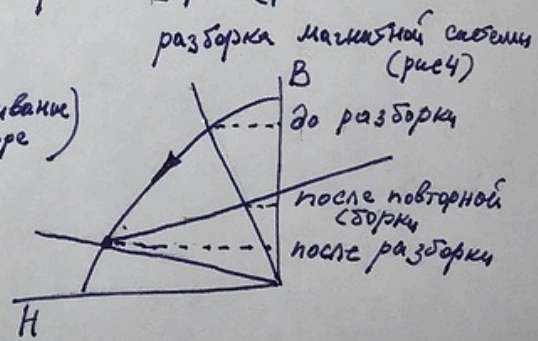 разборка магнитной системы
(рис4)
B
до разборки
после повторной
сборки
после разборки
H